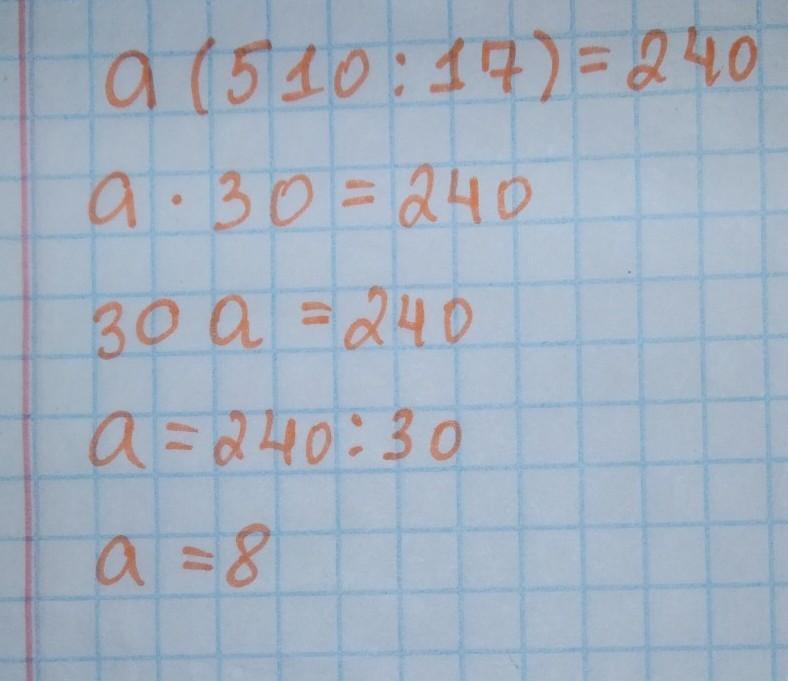 a (510 : 17) = 240
a · 30 = 240
30 a = 240
a = 240 : 30
a = 8